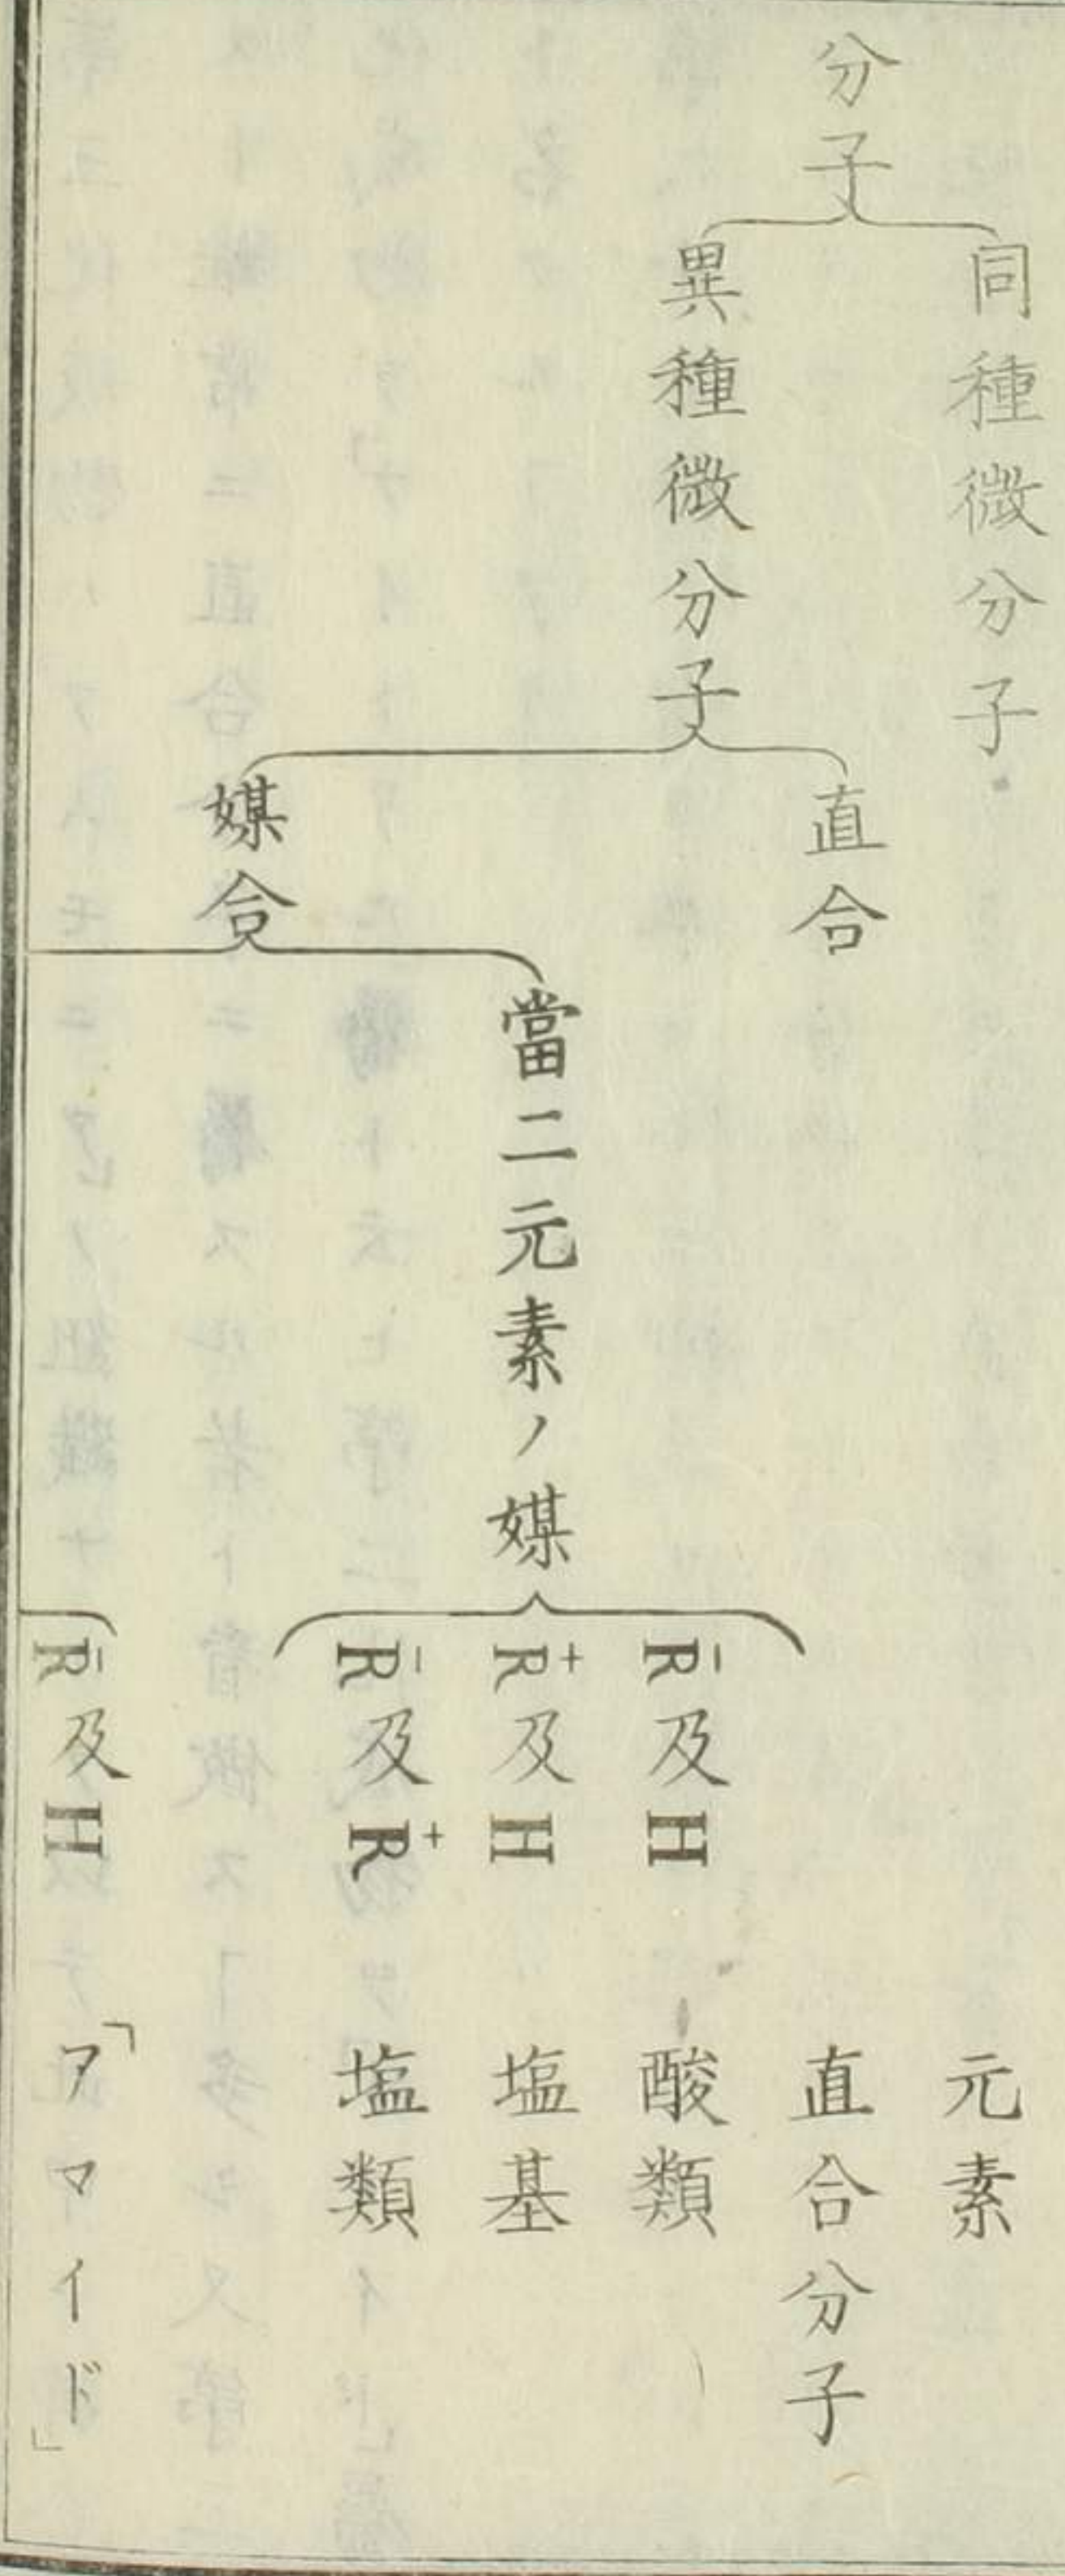 分子
同種微分子
元素
異種微分子
直合
直合分子
媒合
當二元素ノ媒
R̄及H
酸類
R⁺及H
塩基
R̄及R⁺
塩類
R̄及H
「アマイド」